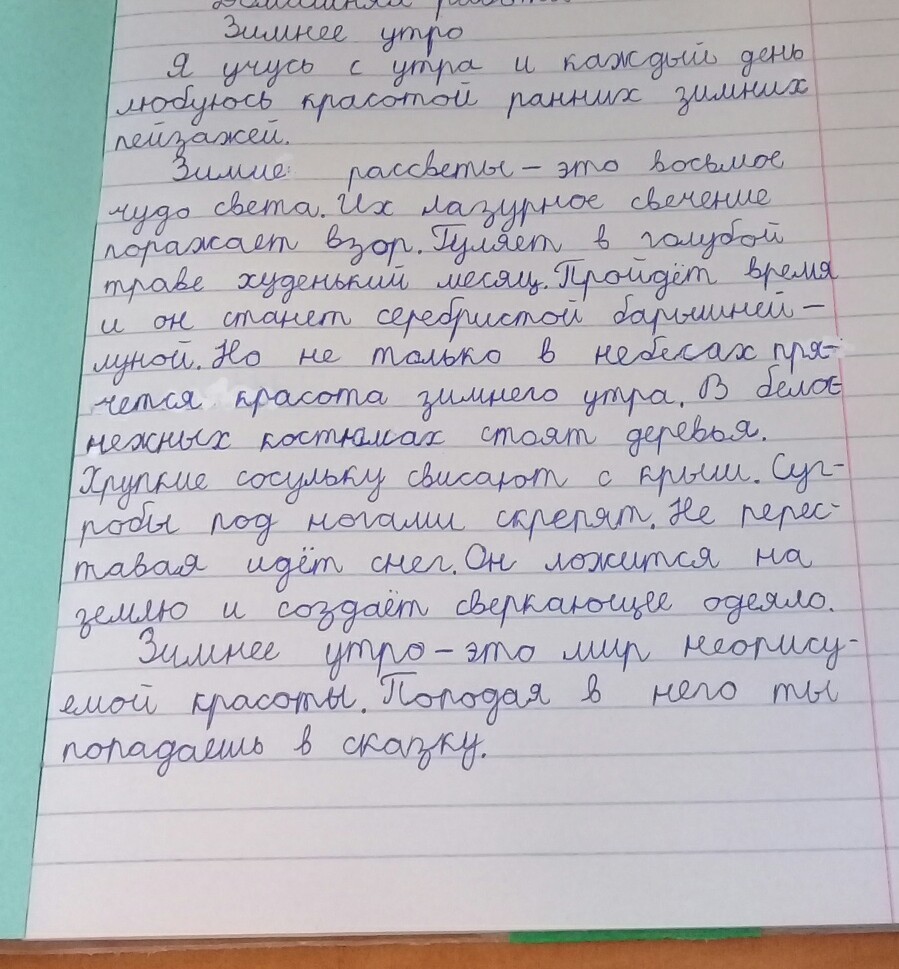 Домашняя работа.
Зимнее утро
Я учусь с утра и каждый день
любуюсь красотой ранних зимних
пейзажей.
Зимие рассветы – это восьмое
чудо света. Их лазурное свечение
поражает взор. Гуляет в голубой
траве худенький месяц. Пройдёт время
и он станет серебристой барышней –
луной. Но не только в небесах пря-
чется красота зимнего утра. В белос
нежных костюмах стоят деревья.
Хрупкие сосульку свисают с крыш. Суг-
робы под ногами скрепят. Не перес-
тавая идёт снег. Он ложится на
землю и создаёт сверкающее одеяло.
Зимнее утро – это мир неопису-
емой красоты. Поподая в него ты
попадаешь в сказку.